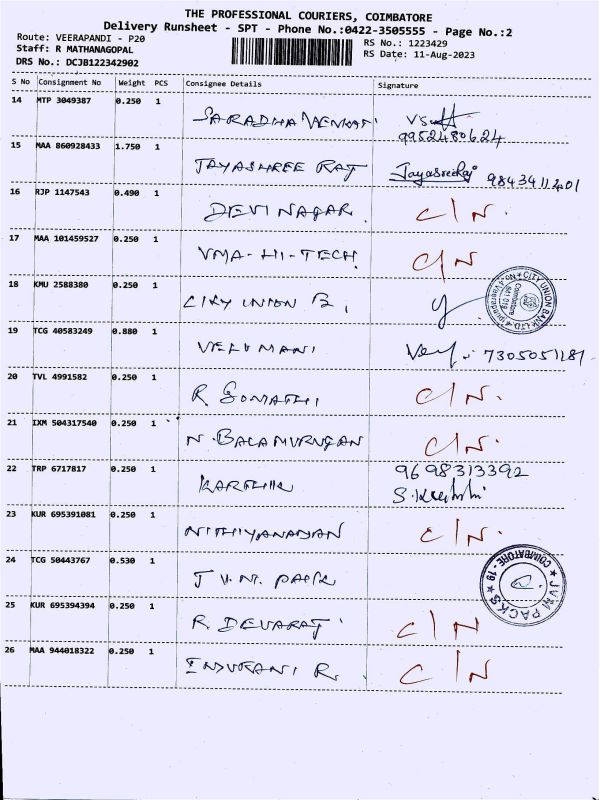 THE PROFESSIONAL COURIERS, COIMBATORE
Delivery Runsheet - SPT - Phone No.:0422-3505555 - Page No.:2
Route: VEERAPANDI - P20
RS No.: 1223429
Staff: R MATHANAGOPAL
RS Date: 11-Aug-2023
DRS No.: DCJB122342902
S No Consignment No Weight PCS Consignee Details Signature
14 MTP 3049387 0.250 1 SARADHA VENKAT
9952480624
15 MAA 860928433 1.750 1 JAYASHREE RAJ Jayasreeraj 9843411201
16 RJP 1147543 0.490 1 DEVI NAGAR. C/N.
17 MAA 101459527 0.250 1 VMA-HI-TECH. C/N
18 KMU 2588380 0.250 1 CITY UNION B. CITY UNION BANK LTD
19 TCG 40583249 0.880 1 VELUMANI 7305051281-
20 TVL 4991582 0.250 1 R GOMATHI C/N.
21 IXM 504317540 0.250 1 N. BALAMURUGAN C/N.
22 TRP 6717817 0.250 1 KARTHIK 9698313392
23 KUR 695391081 0.250 1 NITHIYANANDAN C/N.
24 TCG 50443767 0.530 1 J V.M. PACK ★ JVM PACKS ★ COIMBATORE - 19
25 KUR 695394394 0.250 1 R. DEVARAJ C/N
26 MAA 944018322 0.250 1 INDURANI R. C/N